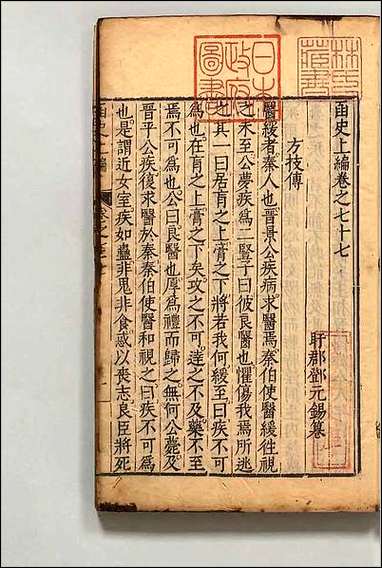 函史上編卷之七十七
盱郡鄧元錫纂
方技傳
醫緩者秦人也晉景公疾病求醫焉秦伯使醫緩往視
之未至公夢疾爲二豎子曰彼良醫也懼傷我焉所逃
之其一曰居肓之上膏之下將若我何緩至曰疾不可
爲也在肓之上膏之下攻之不可達之不及藥不至
焉不可爲也公曰良醫也厚爲禮而歸之無何公薨及
晉平公疾復求醫於秦秦伯使醫和視之曰疾不可爲
也是謂近女室疾如蠱非鬼非食惑以喪志良臣將死
函史上編
日本
政府
圖書
林氏
藏書